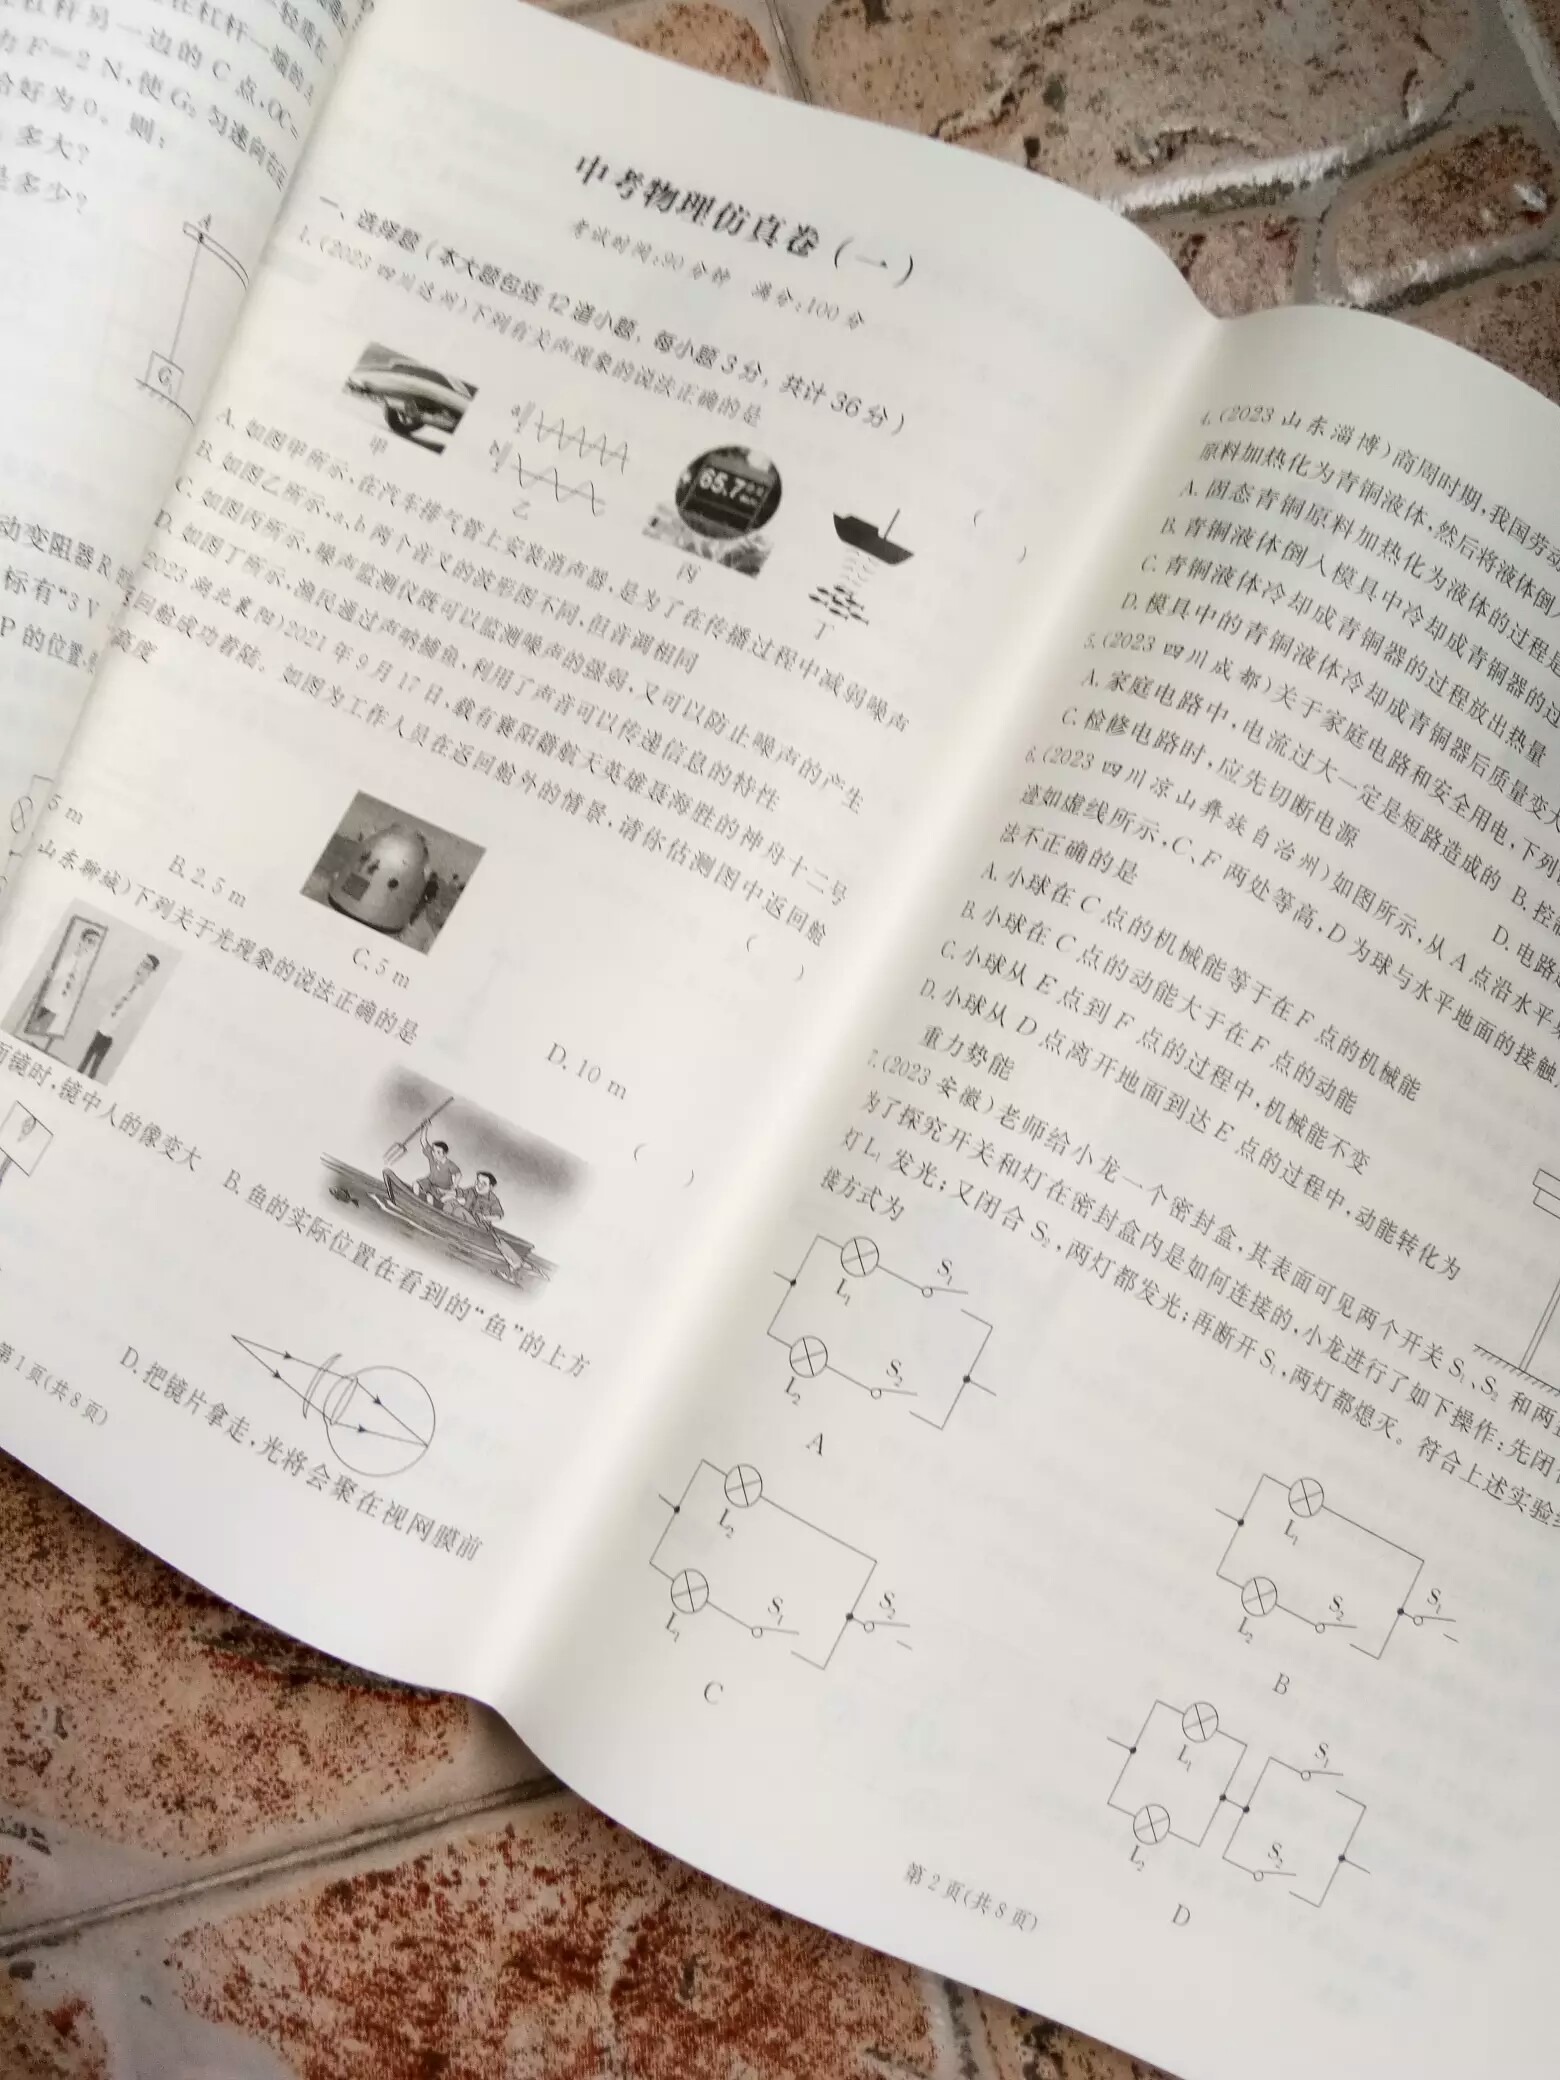 杠杆另一边的 C 点,OC=
力 F=2 N,使 G₂ 匀速向
恰好为 0。则:
多大?
是多少?
A
G₁
动变阻器 R
标有“3 V
P 的位置
中考物理仿真卷(一)
考试时间:90 分钟 满分:100 分
一、选择题(本大题包括 12 道小题,每小题 3 分,共计 36 分)
1.(2023 四川达州)下列有关声现象的说法正确的是
( )
甲
a
b
乙
65.7
丙
丁
A. 如图甲所示,在汽车排气管上安装消声器,是为了在传播过程中减弱噪声
B. 如图乙所示,a、b 两个音叉的波形图不同,但音调相同
C. 如图丙所示,噪声监测仪既可以监测噪声的强弱,又可以防止噪声的产生
D. 如图丁所示,渔民通过声呐捕鱼,利用了声音可以传递信息的特性
2023 湖北襄阳)2021 年 9 月 17 日,载有襄阳籍航天英雄聂海胜的神舟十二号
回舱成功着陆。如图为工作人员在返回舱外的情景,请你估测图中返回舱
高度
( )
5 m
B. 2.5 m
C. 5 m
D. 10 m
山东聊城)下列关于光现象的说法正确的是
( )
面镜时,镜中人的像变大
B. 鱼的实际位置在看到的“鱼”的上方
D. 把镜片拿走,光将会聚在视网膜前
第 1 页(共 8 页)
4.(2023 山东淄博)商周时期,我国劳动
原料加热化为青铜液体,然后将液体倒
A. 固态青铜原料加热化为液体的过程是
B. 青铜液体倒入模具中冷却成青铜器的过
C. 青铜液体冷却成青铜器的过程放出热量
D. 模具中的青铜液体冷却成青铜器后质量变大
5.(2023 四川成都)关于家庭电路和安全用电,下列
A. 家庭电路中,电流过大一定是短路造成的 B. 控
C. 检修电路时,应先切断电源 D. 电路
6.(2023 四川凉山彝族自治州)如图所示,从 A 点沿水平
迹如虚线所示,C、F 两处等高,D 为球与水平地面的接触
法不正确的是
A. 小球在 C 点的机械能等于在 F 点的机械能
B. 小球在 C 点的动能大于在 F 点的动能
C. 小球从 E 点到 F 点的过程中,机械能不变
D. 小球从 D 点离开地面到达 E 点的过程中,动能转化为
重力势能
7.(2023 安徽)老师给小龙一个密封盒,其表面可见两个开关 S₁、S₂ 和两
为了探究开关和灯在密封盒内是如何连接的,小龙进行了如下操作:先闭
灯 L₁ 发光;又闭合 S₂,两灯都发光;再断开 S₁,两灯都熄灭。符合上述实验
接方式为
L₁
S₁
L₂
S₂
A
L₁
L₂
S₂
S₁
B
L₂
L₁
S₁
S₂
C
L₁
L₂
S₁
S₂
D
第 2 页(共 8 页)